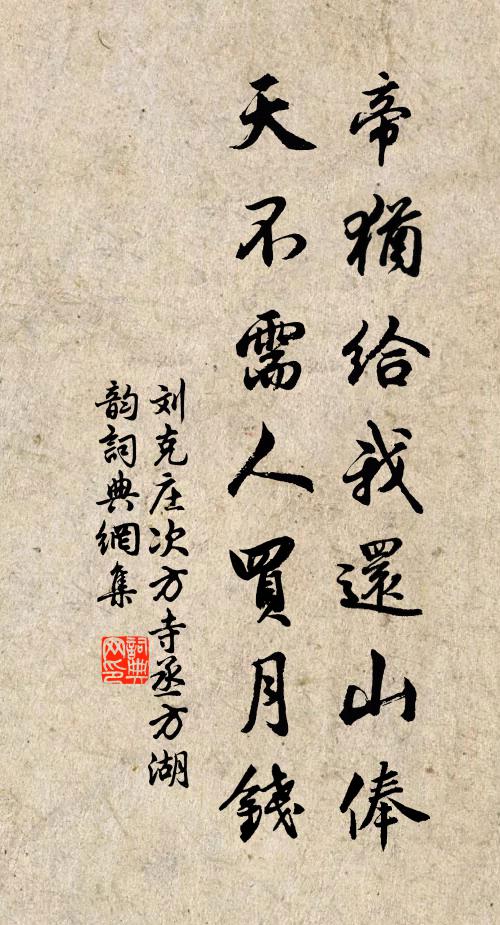 帝猶給我還山俸
天不需人買月錢
刘克庄次方寺丞方湖
韵詞典網集
詞典网印